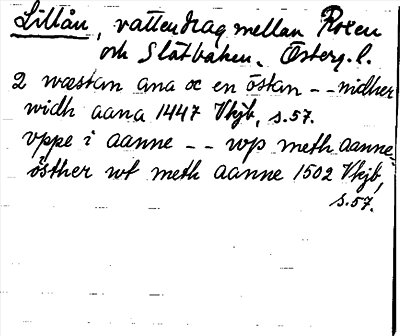 Lillån, vattendrag mellan Roxen
och Slätbaken. Österg. l.
2 wæstan ana oc en östan -- nidher
widh aana 1447 Vkjb, s. 57.
vppe i aanne -- wp meth aanne
östher wt meth aanne 1502 Vkjb,
s. 57.